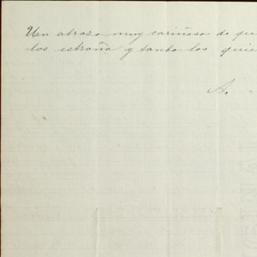 Un abrazo muy cariñoso de
los estraña y tanto los
A.